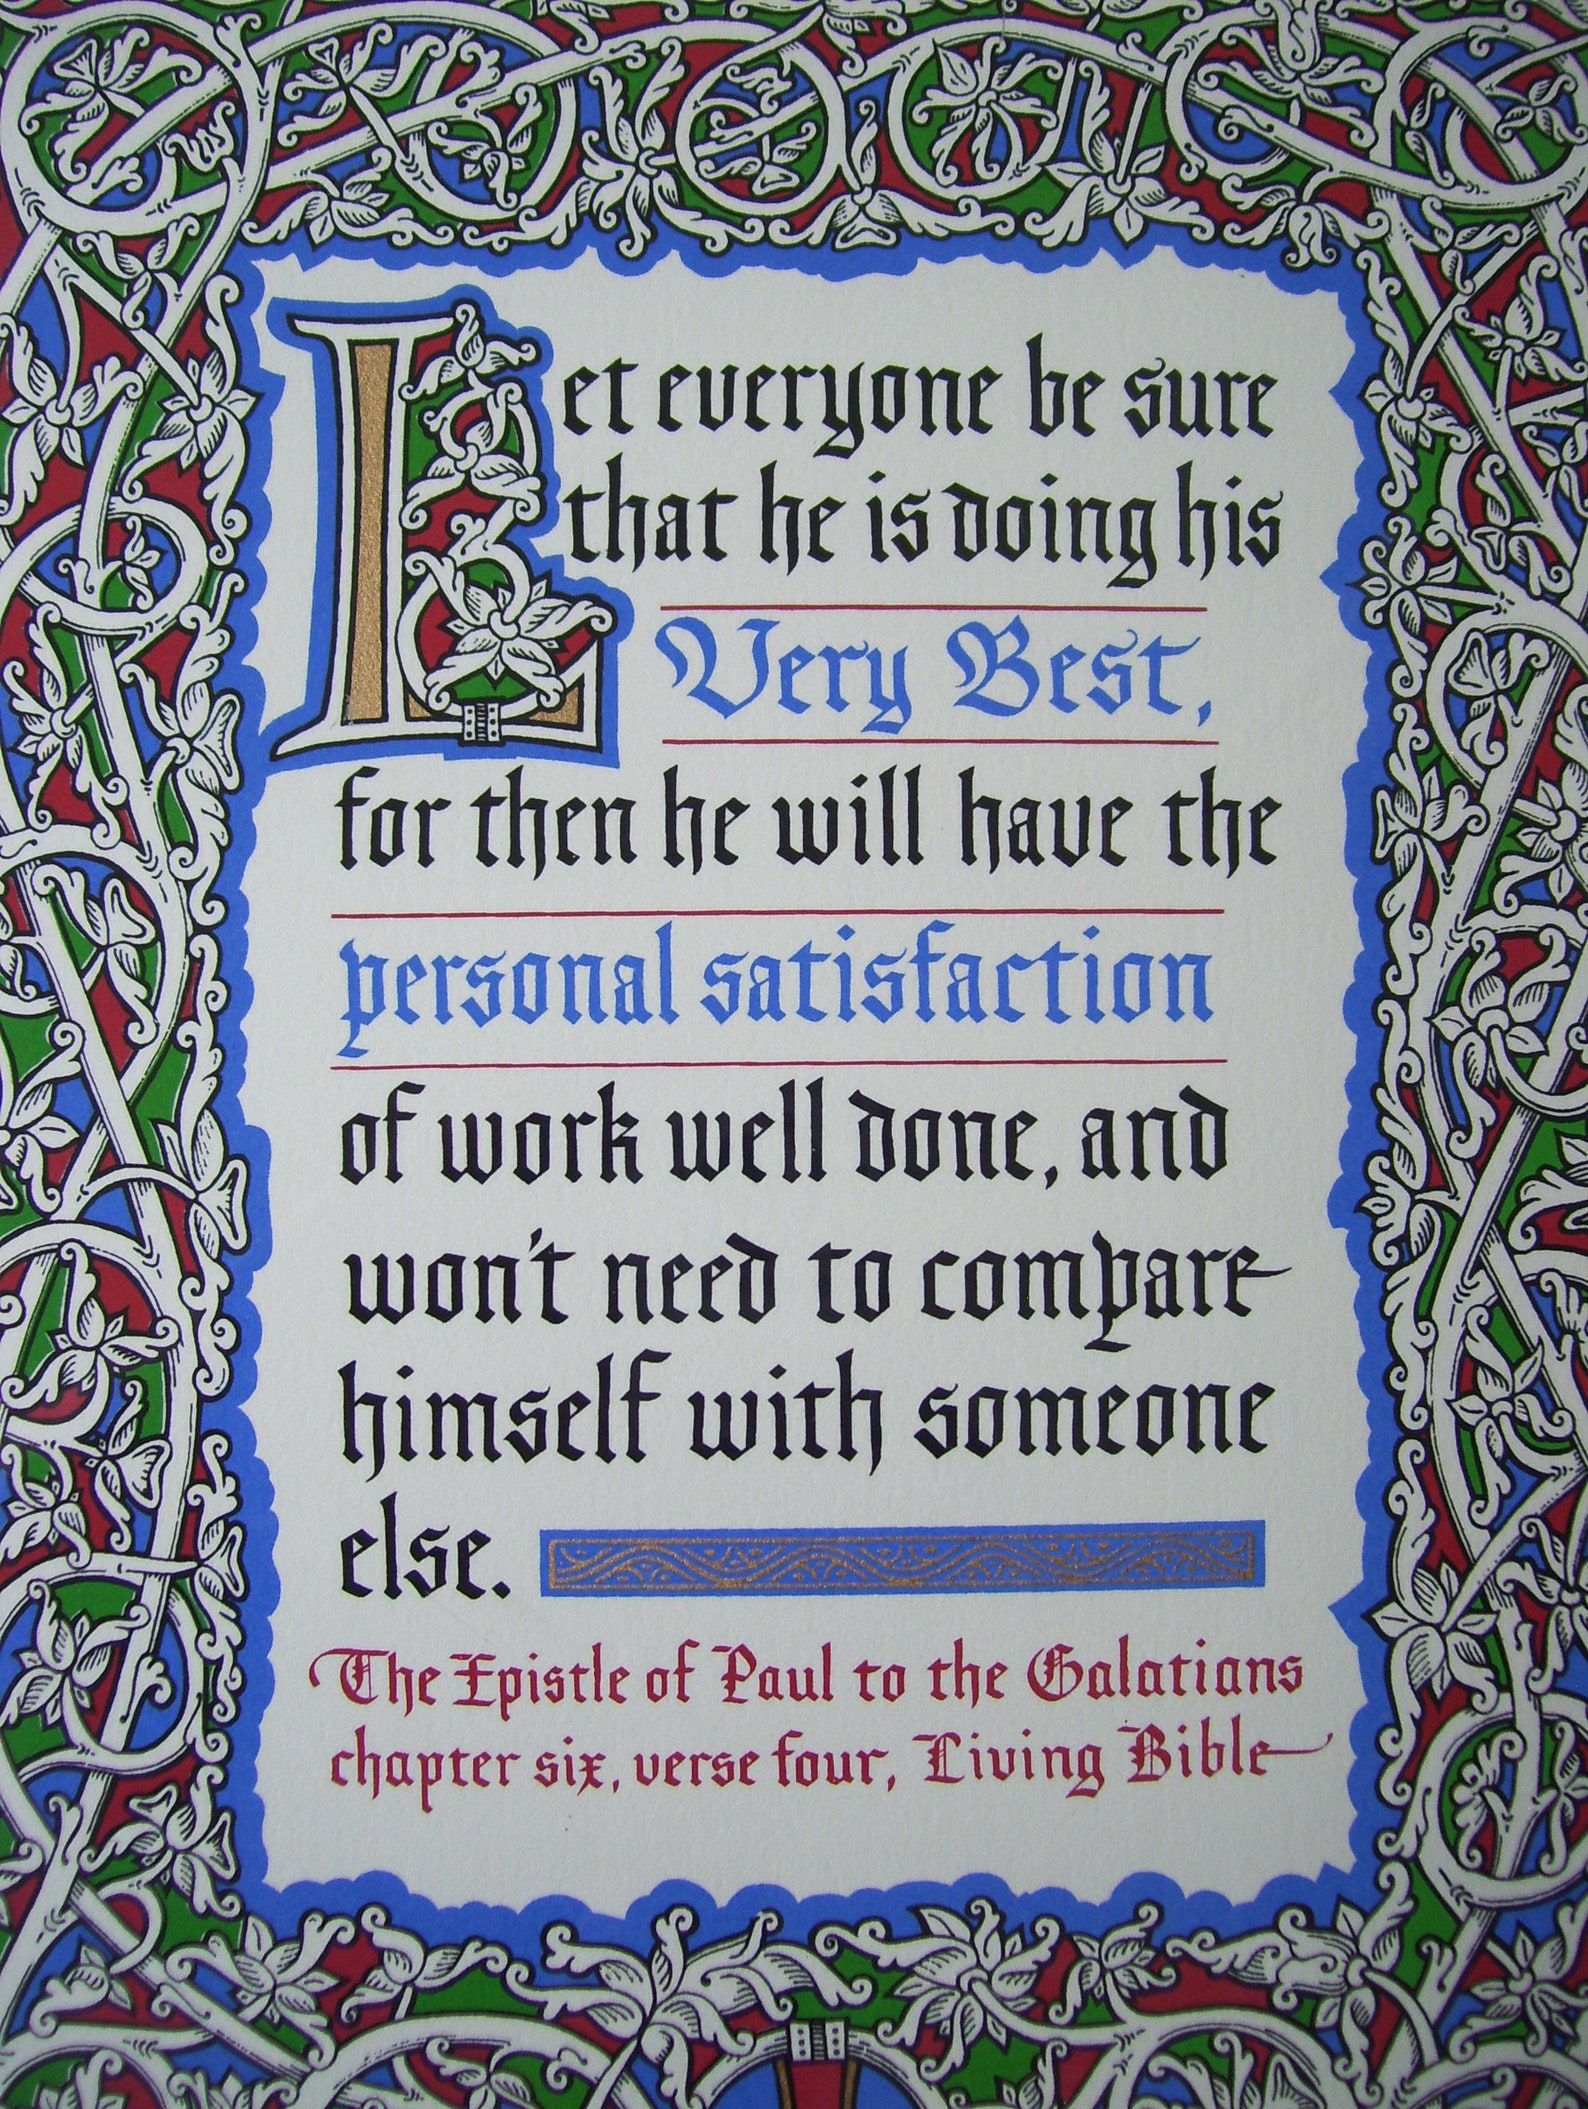 Let everyone be sure
that he is doing his
Very Best,
for then he will have the
personal satisfaction
of work well done, and
won't need to compare
himself with someone
else.
The Epistle of Paul to the Galatians
chapter six, verse four, Living Bible